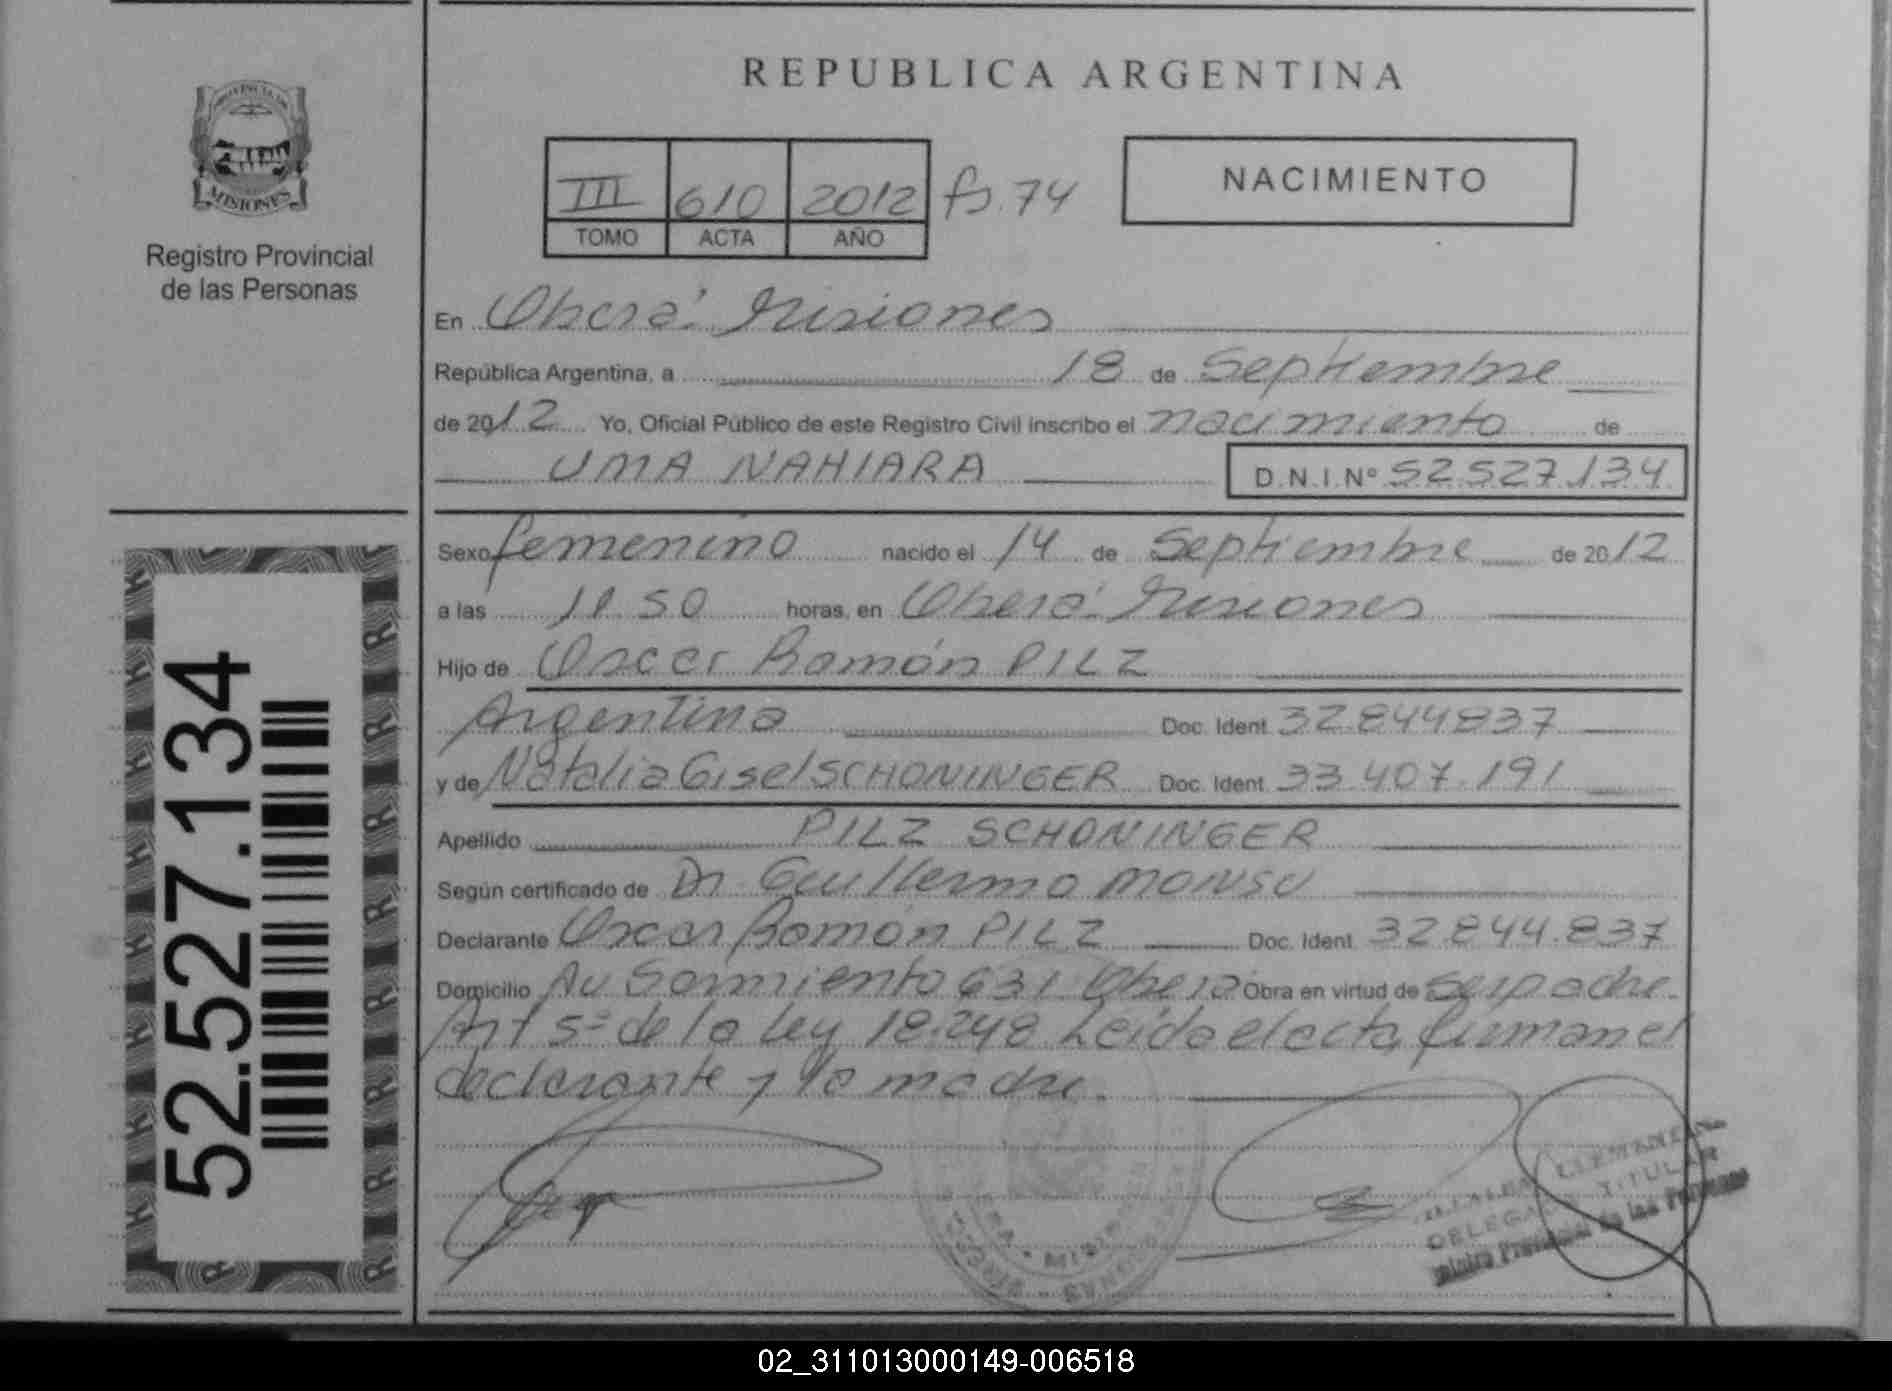 REPUBLICA ARGENTINA
PROVINCIA DE
MISIONES
Registro Provincial
de las Personas
III 610 2012 fs. 74
TOMO ACTA AÑO
NACIMIENTO
En Oberá Misiones
República Argentina, a 18 de Septiembre
de 2012 Yo, Oficial Público de este Registro Civil inscribo el nacimiento de
UMA NAHIARA D.N.I.Nº 52.527.134
Sexo femenino nacido el 14 de Septiembre de 2012
a las 11.50 horas, en Oberá Misiones
Hijo de Oscar Ramón PILZ
Argentina Doc. Ident. 32.844837
y de Natalia Gisel SCHONINGER Doc. Ident. 33.407.191
Apellido PILZ SCHONINGER
Según certificado de Dr Guillermo MONSU
Declarante Oscar Ramón PILZ Doc. Ident. 32.844.837
Domicilio Av Sarmiento 631 Oberá Obra en virtud de ser padre.
Art 5º de la Ley 18.248 Leída el acta, firman el
declarante y la madre.
52.527.134
DELEGADO TITULAR
Provincial de las Personas
02_311013000149-006518